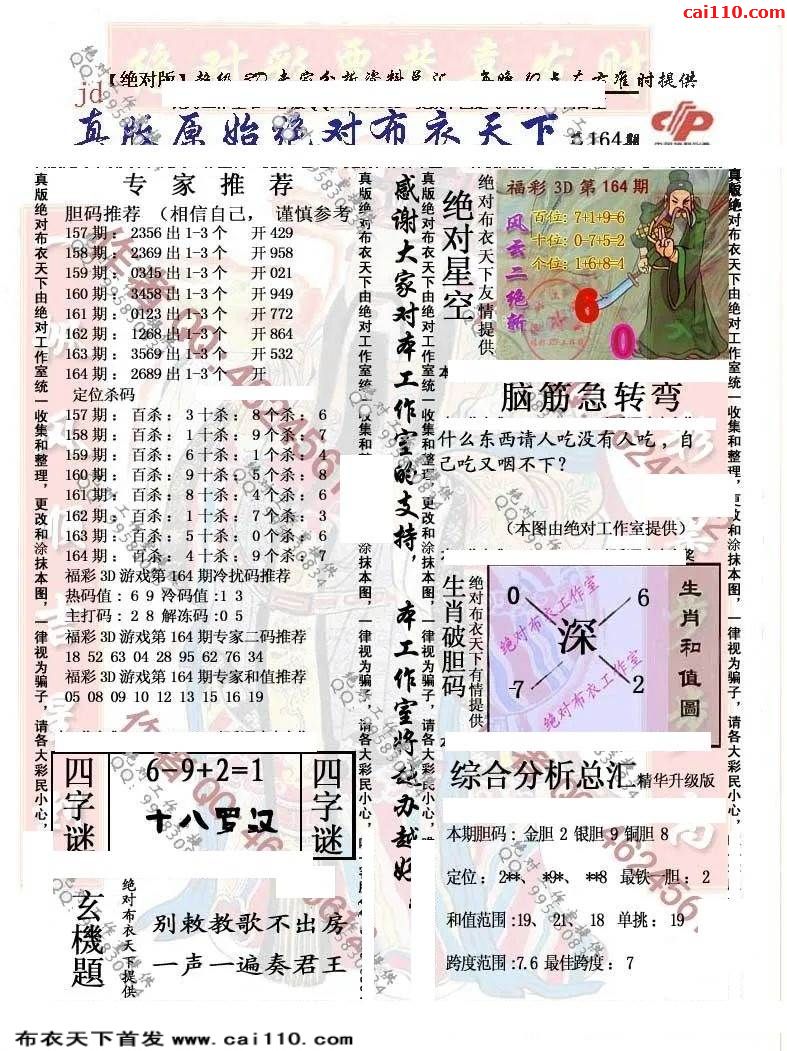 cai110.com
【绝对版】
准时提供
jd
真版原始绝对布衣天下
164期
专家推荐
胆码推荐 （相信自己， 谨慎参考
157期： 2356出1-3个 开429
158期： 2369出1-3个 开958
159期： 0345出1-3个 开021
160期： 3458出1-3个 开949
161期： 0123出1-3个 开772
162期： 1268出1-3个 开864
163期： 3569出1-3个 开532
164期： 2689出1-3个 开
定位杀码
157期： 百杀：3十杀：8个杀：6
158期： 百杀：1十杀：9个杀：7
159期： 百杀：6十杀：1个杀：4
160期： 百杀：9十杀：5个杀：8
161期： 百杀：8十杀：4个杀：6
162期： 百杀：1十杀：7个杀：3
163期： 百杀：5十杀：0个杀：6
164期： 百杀：4十杀：9个杀：7
福彩3D游戏第164期冷扰码推荐
热码值：69冷码值：13
主打码：28解冻码：05
福彩3D游戏第164期专家二码推荐
18 52 63 04 28 95 62 76 34
福彩3D游戏第164期专家和值推荐
05 08 09 10 12 13 15 16 19
真版绝对布衣天下由绝对工作室统一收集和整理，更改和涂抹本图，一律视为骗子，请各大彩民小心，
感谢大家对本工作室的支持，本工作室将越办越好
绝对星空
绝对布衣天下友情提供
福彩3D第164期
风云二绝斩
百位：7+1+9=6
十位：0-7+5=2
个位：1+6+8=4
6
0
脑筋急转弯
什么东西请人吃没有人吃，自
己吃又咽不下？
（本图由绝对工作室提供）
生肖破胆码
绝对布衣天下有情提供
0
6
深
7
2
绝对布衣工作室
绝对布衣工作室
生肖和值圖
四字谜
6-9+2=1
十八罗汉
四字谜
玄機題
绝对布衣天下提供
别敕教歌不出房
一声一遍奏君王
综合分析总汇 精华升级版
本期胆码：金胆2银胆9铜胆8
定位：2**、*9*、**8 最铁一胆：2
和值范围:19、21、18 单挑：19
跨度范围:7.6最佳跨度：7
布衣天下首发 www.cai110.com